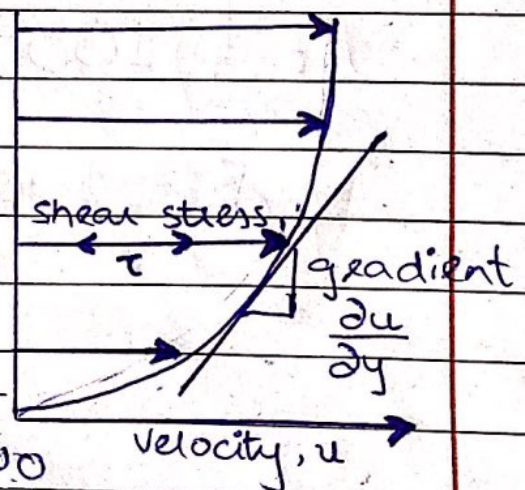 shear stress,
τ
gradient
∂u
∂y
velocity, u